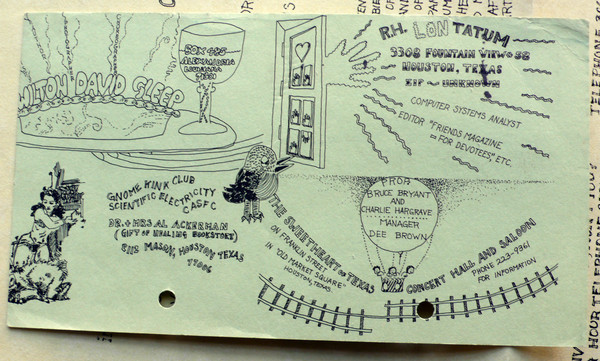 WILTON DAVID GLEEP
BOX 485
ALEXANDRIA
LOUISIANA
71301
R.H. LON TATUM
3308 FOUNTAIN VIEW #38
HOUSTON, TEXAS
ZIP ~ UNKNOWN
COMPUTER SYSTEMS ANALYST
EDITOR "FRIENDS MAGAZINE
= FOR DEVOTEES," ETC.
GNOME KINK CLUB
SCIENTIFIC ELECTRICITY
CASFC
DR. + MRS AL ACKERMAN
(GIFT OF HEALING BOOKSTORE)
MASON, HOUSTON TEXAS
77006
THE SWEETHEART OF TEXAS
ON FRANKLIN STREET
IN "OLD MARKET SQUARE"
HOUSTON, TEXAS
PROP.
BRUCE BRYANT
AND
CHARLIE HARGRAVE
MANAGER
DEE BROWN
CONCERT HALL AND SALOON
PHONE 223-9961
FOR INFORMATION